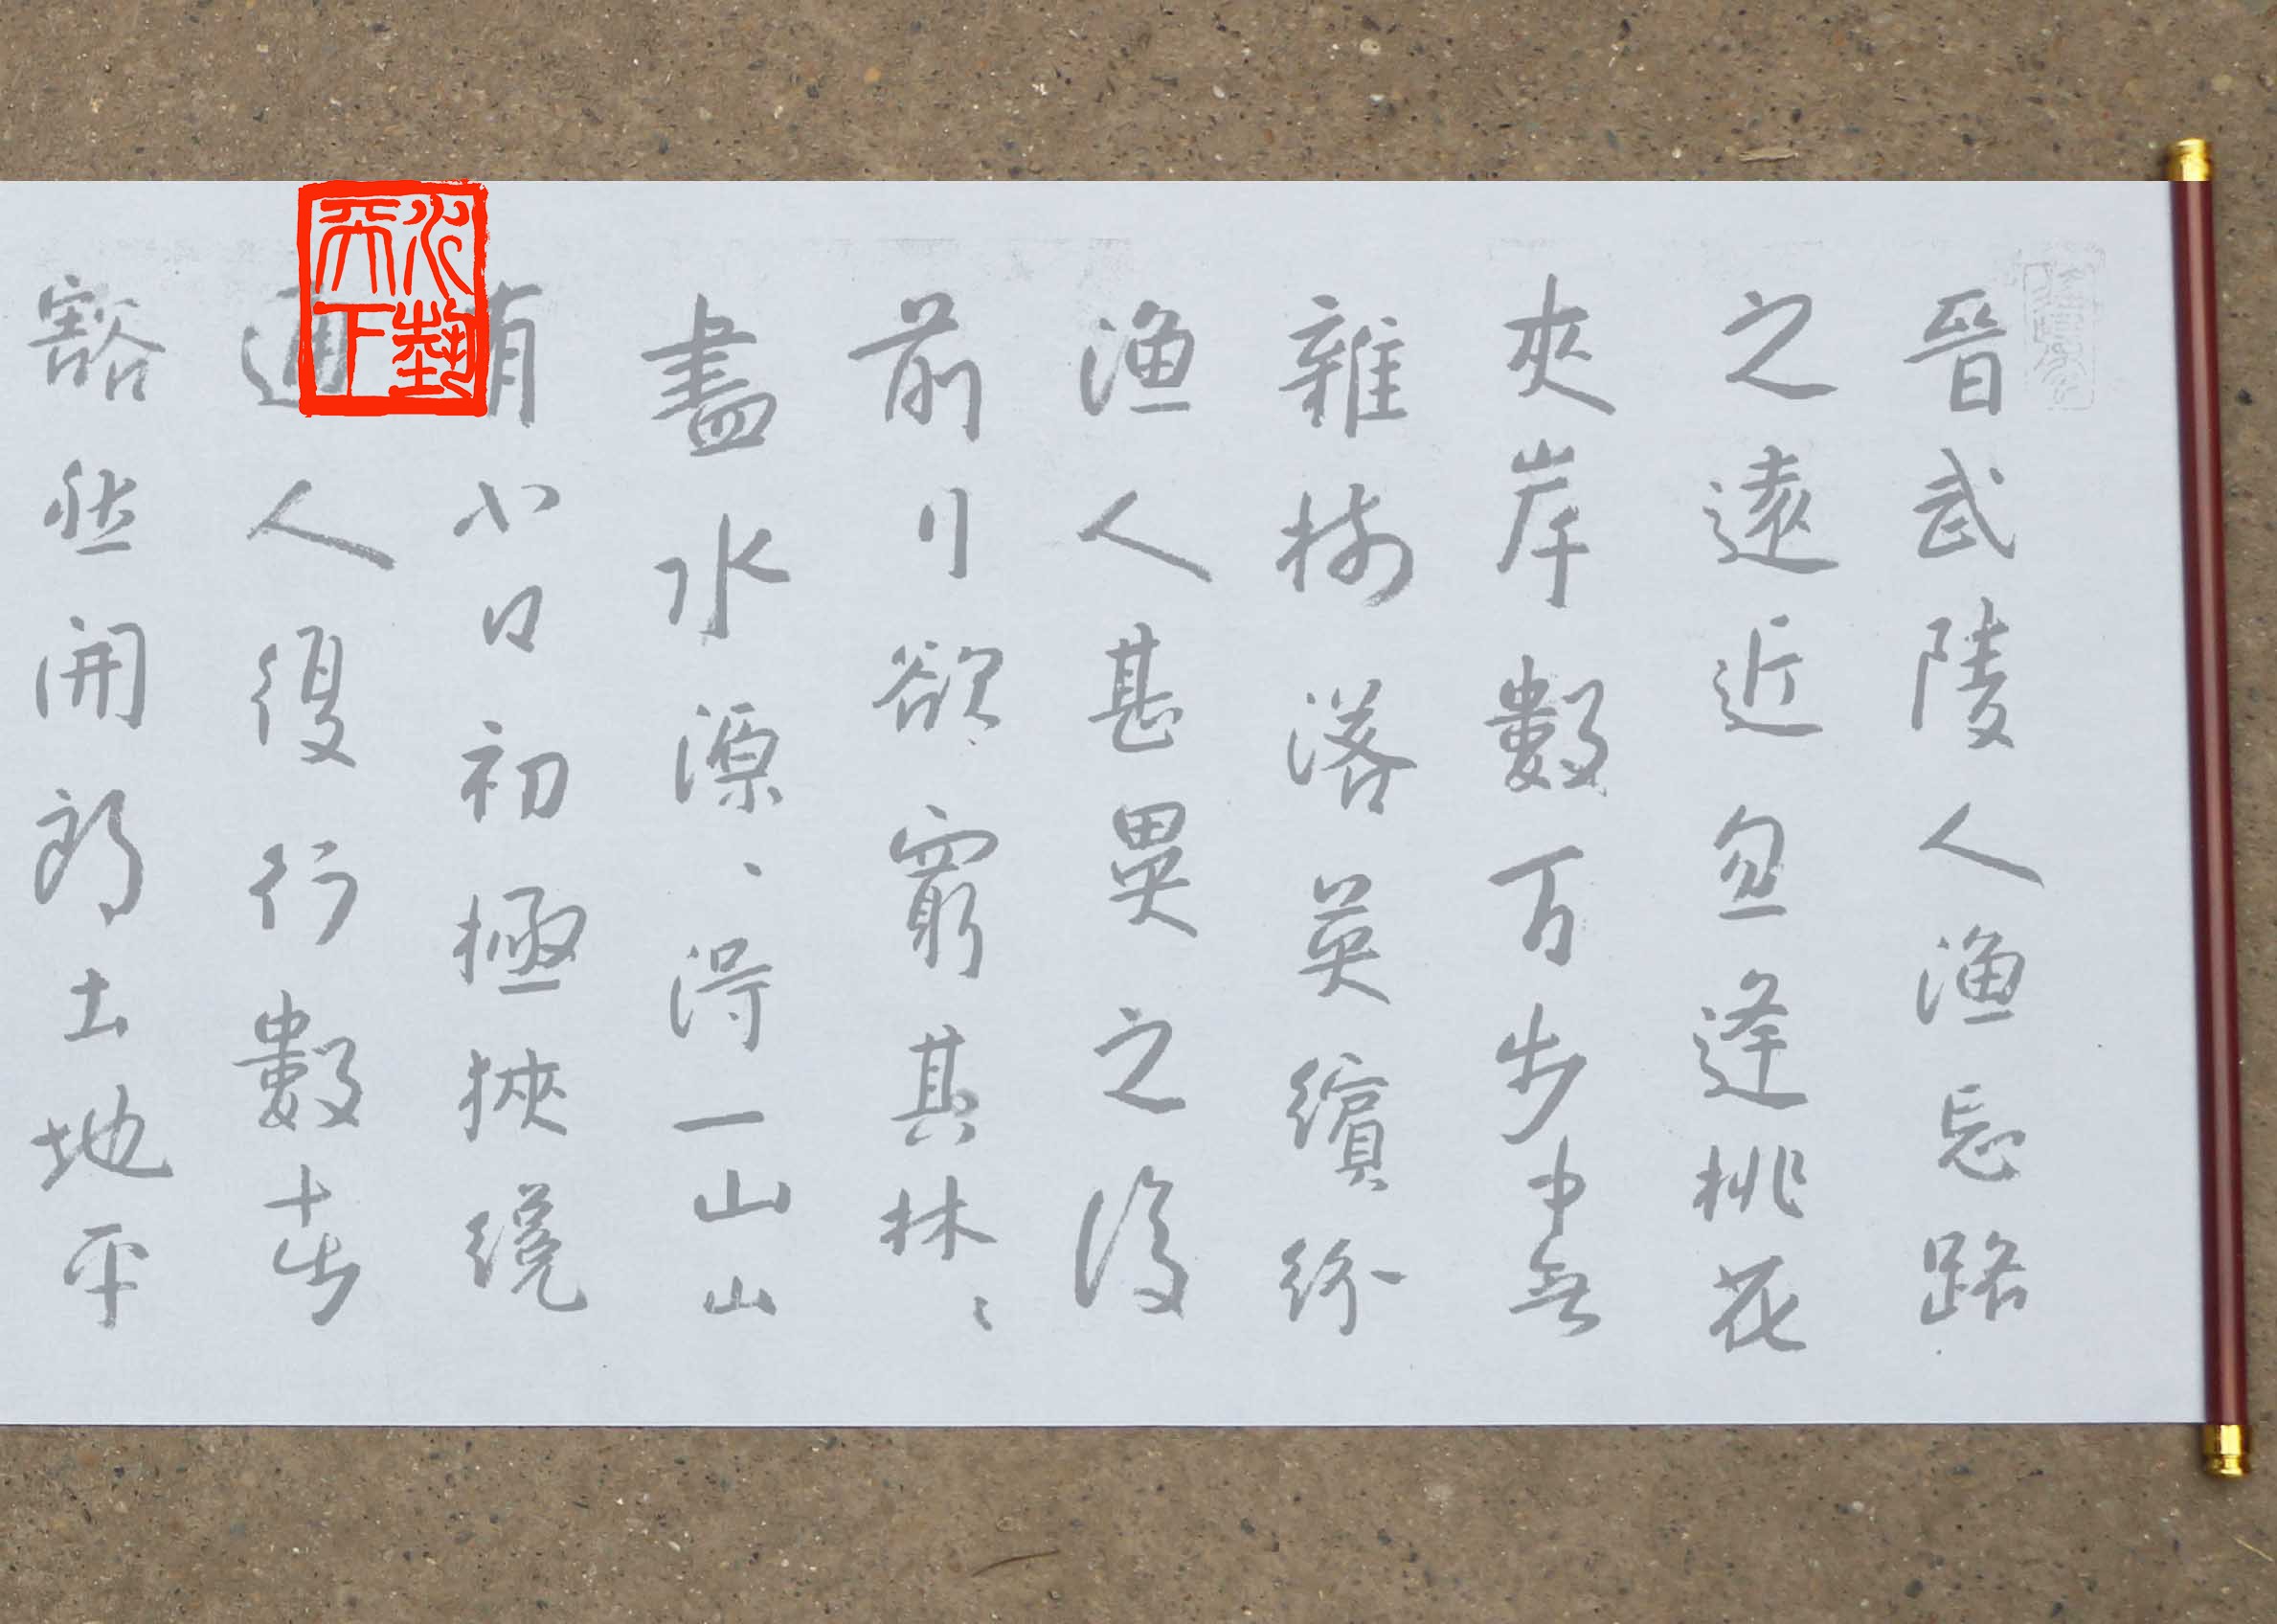 晉武陵人漁忘路
之遠近忽逢桃花
夾岸數百步中無
雜樹落英繽紛
漁人甚異之復
前行欲窮其林、
盡水源、得一山山
有小口初極狹纔
通人復行數十步
豁然開朗土地平
天下